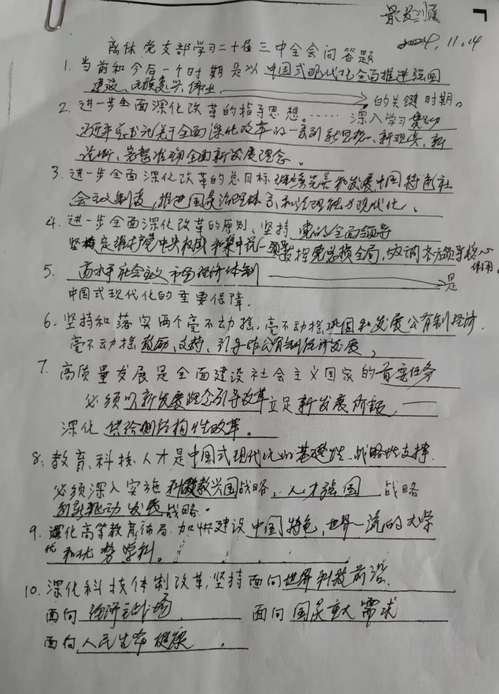 2024.11.14
离休党支部学习二十届三中全会问答题
1. 当前和今后一个时期是以中国式现代化全面推进强国
建设、民族复兴伟业 的关键时期。
2. 进一步全面深化改革的指导思想。…… 深入学习贯彻
习近平总书记关于全面深化改革的一系列新思想、新观点、新
论断、完整准确全面新发展理念。
3. 进一步全面深化改革的总目标继续完善和发展中国特色社
会主义制度,推进国家治理体系和治理能力现代化。
4. 进一步全面深化改革的原则、坚持党的全面领导
坚持党中央权威和集中统一领导 党总揽全局,协调各方领导核心
作用
5. 高水平社会主义市场经济体制 是
中国式现代化的重要保障.
6. 坚持和落实两个毫不动摇,毫不动摇巩固和发展公有制经济.
毫不动摇鼓励、支持、引导非公有制经济发展。
7. 高质量发展是全面建设社会主义国家的首要任务
必须以新发展理念引导改革立足新发展阶段,
深化供给侧结构性改革.
8. 教育、科技、人才是中国式现代化的基础性、战略性支撑.
必须深入实施科教兴国战略,人才强国 战略
创新驱动发展战略.
9. 深化高等教育布局.加快建设中国特色,世界一流的大学
和优势学科。
10. 深化科技体制改革,坚持面向世界科技前沿.
面向经济主战场 面向国家重大需求
面向人民生命健康.